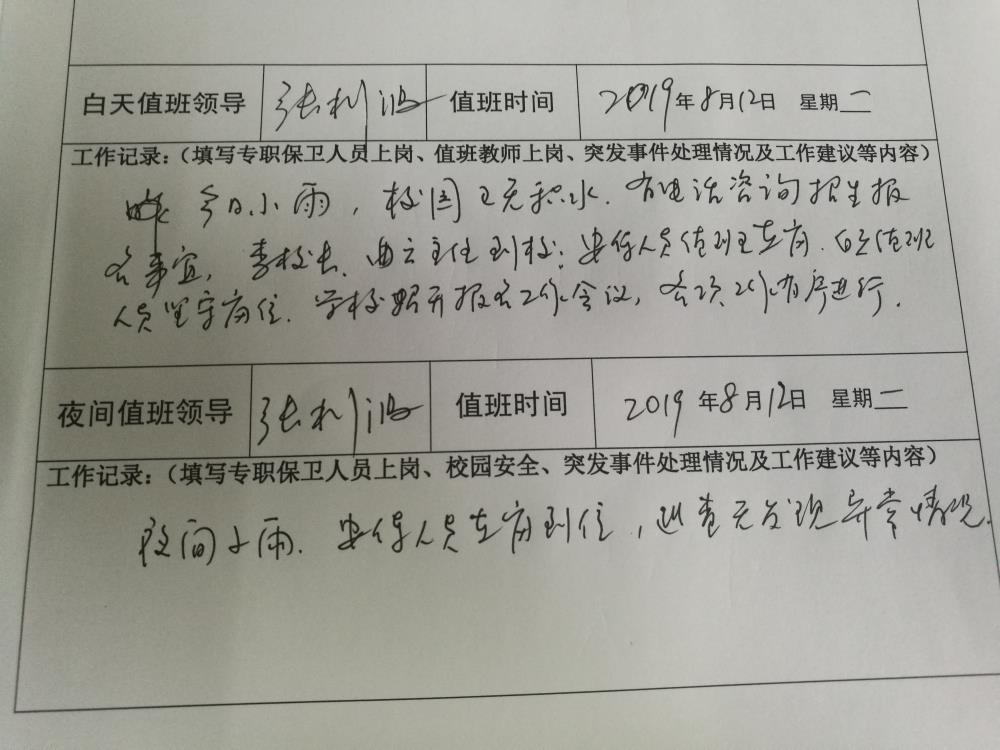 白天值班领导 张利波 值班时间 2019年8月12日 星期二
工作记录：（填写专职保卫人员上岗、值班教师上岗、突发事件处理情况及工作建议等内容）
今日小雨，校园已无积水．有电话咨询招生报
名事宜，李校长、曲云主任到校；安保人员值班在岗．白天值班
人员坚守岗位．学校召开报名工作会议，各项工作有序进行．
夜间值班领导 张利波 值班时间 2019年8月12日 星期二
工作记录：（填写专职保卫人员上岗、校园安全、突发事件处理情况及工作建议等内容）
夜间小雨．安保人员在岗到位，巡查无发现异常情况．